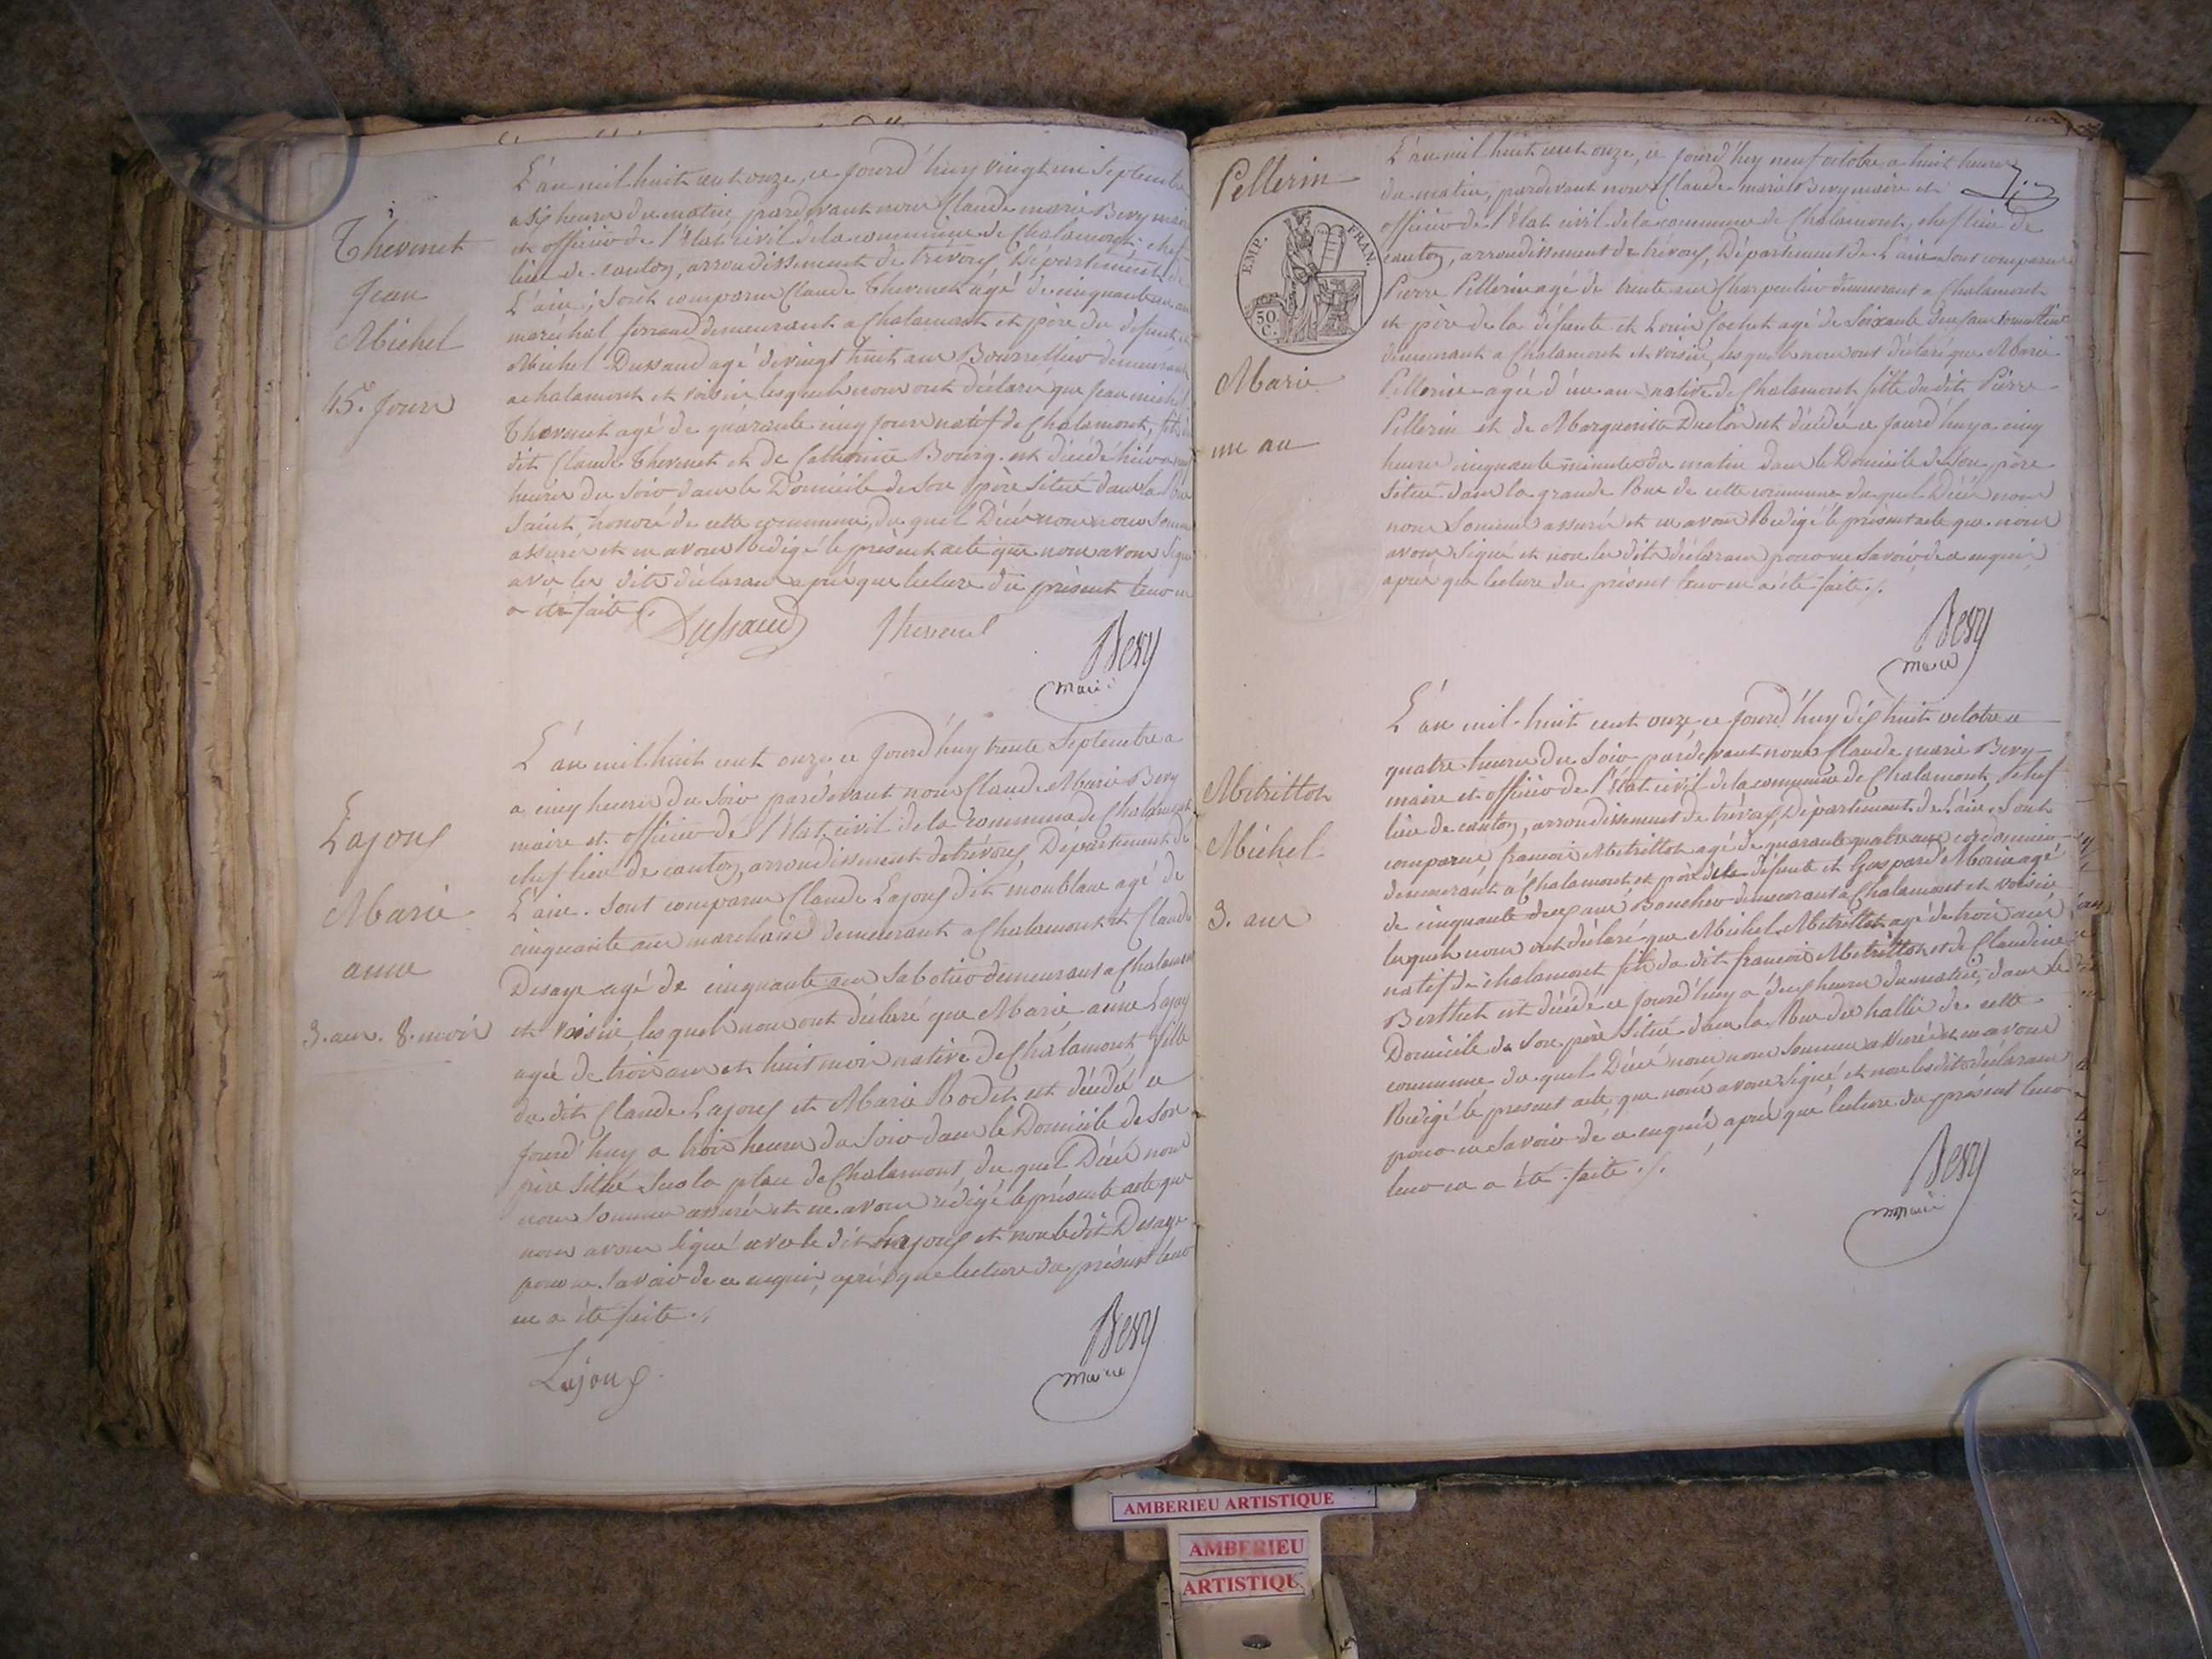 Thevenet
Jean
Michel
45. jours
L'an mil huit cent onze, ce jourd'huy vingt un Septembre
a six heures du matin, pardevant nous Claude marie Bevy maire
et officier de l'état civil de la commune de Chalamont, chef
lieu de canton, arrondissement de trévoux, Département de
L'ain; sont comparus Claude Thevenet agé de cinquante un ans
maréchal ferrand demeurant a Chalamont et père du défunt et
Michel Dussaud agé de vingt huit ans Bourrellier demeurant
a chalamont et voisin lesquels nous ont déclaré que Jean michel
Thevenet agé de quarante cinq jours natif de Chalamont, fils du
dit Claude Thevenet et de Catherine Bourg. est décédé hier a neuf
heures du soir dans le Domicile de son père situé dans la Rue
Saint honoré de cette commune, du quel Décè nous nous sommes
assurés et en avons Redigé le présent acte que nous avons signé
avec les dits déclarans après que lecture du présent leur en
a été faite ./.
Dussaud Thevenet Bevy
maire
Lajoux
Marie
anne
3. ans. 8. mois
L'an mil huit cent onze ce jourd'huy trente Septembre a
a cinq heures du soir pardevant nous Claude Marie Bevy
maire et officier de l'état civil de la commune de Chalamont
chef lieu de canton, arrondissement de trévoux, Département de
L'ain. sont comparus Claude Lajoux dit montblanc agé de
cinquante ans marchand demeurant a Chalamont et Claude
Desaye agé de cinquante ans Sabotier demeurant a Chalamont
et voisin, lesquels nous ont déclaré que Marie anne Lajoux
agée de trois ans et huit mois native de Chalamont fille
du dit Claude Lajoux et Marie Rodet est décédée ce
jourd'huy a trois heures du soir dans le Domicile de son
père situé sur la place de Chalamont, du quel Décè nous
nous sommes assurés et en avons rédigé le présente acte que
nous avons signé avec le dit Lajoux et non le dit Desaye
pour ne savoir de ce enquis, après que lecture du présent leur
en a été faite ./.
Lajoux Bevy
maire
Pellerin
EMP. FRAN.
50 C.
Marie
un an
L'an mil huit cent onze, ce jourd'huy neuf octobre a huit heures
du matin, pardevant nous Claude marie Bevy maire et
officier de l'état civil de la commune de Chalamont, chef lieu de
canton, arrondissement de trévoux, Département de L'ain sont comparus
Pierre Pellerin agé de trente ans Charpentier demeurant a Chalamont
et père de la défunte et Louis Cochet agé de Soixante deux ans
demeurant a Chalamont et voisin, lesquels nous ont déclaré que Marie
Pellerin agée d'un an native de Chalamont fille du dit Pierre
Pellerin et de Marguerite Duclos est décédée ce jourd'huy a cinq
heures cinquante minutes du matin dans le Domicile de son père
situé dans la grande Rue de cette commune du quel Décè nous
nous sommes assurés et en avons Redigé le présent acte que nous
avons signé et non les dits déclarans pour ne savoir de ce enquis,
après que lecture du présent leur en a été faite ./.
Bevy
maire
Metrillot
Michel
3. ans
L'an mil huit cent onze, ce jourd'huy dix huit octobre a
quatre heures du soir pardevant nous Claude marie Bevy
maire et officier de l'état civil de la commune de Chalamont, chef
lieu de canton, arrondissement de trévoux, Département de L'ain. Sont
comparus francois Metrillot agé de quarante quatre ans cordonnier
demeurant a Chalamont et père de la défunte et Gaspard Morin agé
de cinquante deux ans Boucher demeurant a Chalamont et voisin
lesquels nous ont déclaré que Michel Metrillot agé de trois ans
natif de chalamont fils du dit francois Metrillot et de Claudine
Berthet est décédé ce jourd'huy a deux heures du matin, dans le
Domicile de son père situé dans la Rue des halles de cette
commune du quel Décè nous nous sommes assurés et en avons
Redigé le present acte que nous avons signé et non les dits déclarans
pour ne savoir de ce enquis après que lecture du présent leur
leur en a été faite ./.
Bevy
maire
AMBERIEU ARTISTIQUE
AMBERIEU
ARTISTIQU